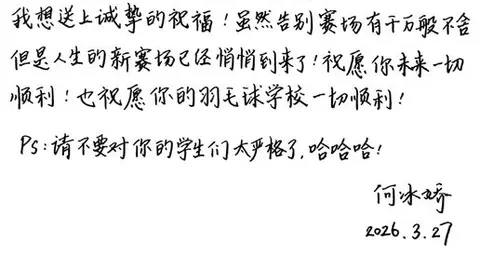 我想送上诚挚的祝福！虽然告别赛场有千万般不舍
但是人生的新赛场已经悄悄到来了！祝愿你未来一切
顺利！也祝愿你的羽毛球学校一切顺利！
Ps：请不要对你的学生们太严格了，哈哈哈！
何冰娇
2026.3.27